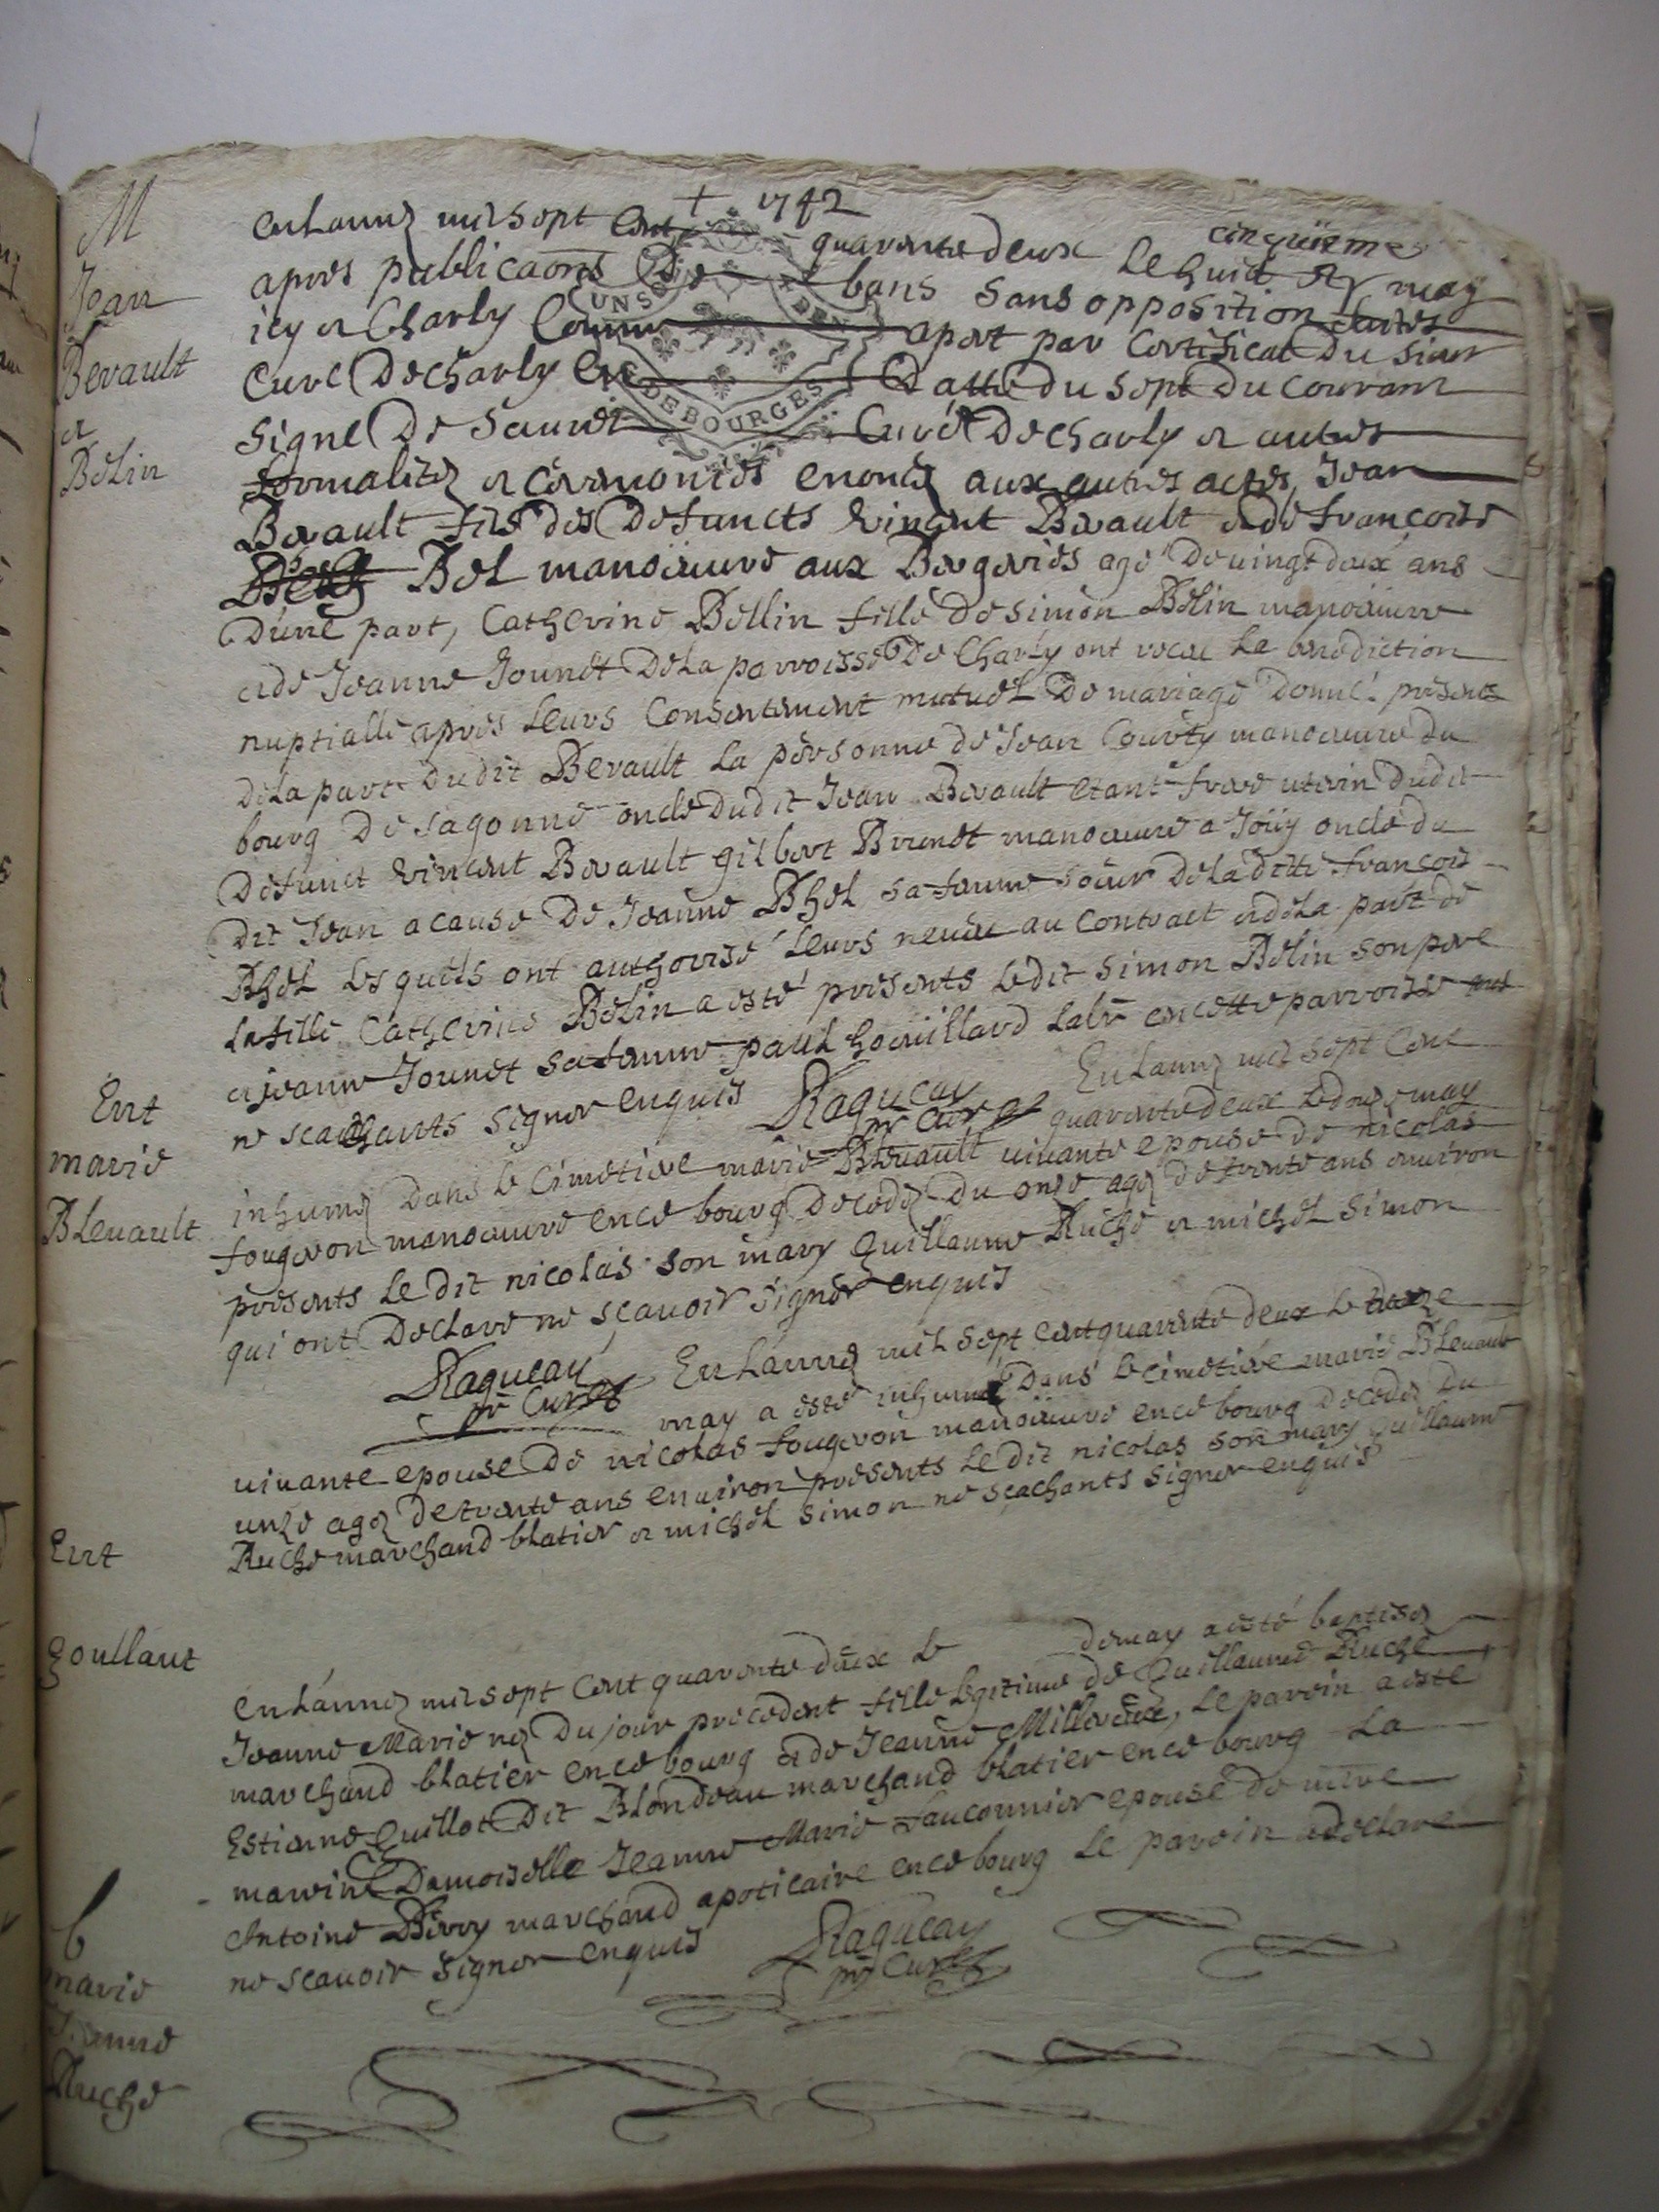 + 1742
M
Jean
Berault
et
Belin
cinquième
en Lannee mil sept Cent quarente deux Le huit de may
apres publicaons De bans sans opposition
icy et Charly Comme apert par Certificat Du sieur
Curé De charly En Datte Du sept Du courant
signe De Curé De charly et autres
formalitez et cérémonies enoncez aux autres actes, Jean
Berault fils des Defuncts vincent Berault et de francoise
Bel manoeuure aux Bergeries agé De uingt deux ans
D'une part, Catherine Bellin fille De simon Belin manoeuure
et de Jeanne Jounet De La parroisse De Charly ont receu La benediction
nuptialle apres Leurs Consentement mutuel De mariage Donné. presents
De La part Dudit Berault La personne de Jean Courty manoeuure du
bourg De sagonne oncle Dudit Jean Berault etant frere uterin Dudit
Defunct vincent Berault gilbert Brunet manoeuure a Joüy oncle du
Dit Jean a cause De Jeanne Bhel sa femme soeur De La ditte francoise
Bhel Lesquels ont authorisé Leurs neueu au Contract et de La part de
La fille Catherine Belin a esté presents Ledit simon Belin son pere
et jeanne Jounet sa femme paul hoüillard Labr en cette parroisse
ne scachants signer enquis Ragueau pr Curé
Ent
marie
BLeuault
En Lannee mil sept Cent
quarente deux Le douze may
inhumee Dans Le Cimetiere marie Bleuault uiuante epouse de nicolas
fougeron manoeuure en ce bourg Decedee Du onze agee de trente ans enuiron
presents Le Dit nicolas son mary guillaume Ruche et michel simon
qui ont Declaré ne scauoir signer enquis
Ragueau
pr Curé
En Lannee mil sept cent quarente deux Le douze
may a esté inhumé Dans Le cimetiere marie BLeuault
uiuante epouse De nicolas fougeron manoeuure en ce bourg Decedee Du
unze agee De trente ans enuiron presents Le Dit nicolas son mary guillaume
Ruche marchand blatier et michel simon ne scachants signer enquis
Ent
goullaut
en Lannee mil sept Cent quarente deux Le de may a esté baptisee
Jeanne Marie nee Du jour precedent fille Legitime de Guillaume Ruche
marchand blatier en ce bourg et de Jeanne Millereux, Le parein a esté
Estienne Guillot Dit BLondeau marchand blatier en ce bourg La
mareine Damoiselle Jeanne Marie fauconnier epouse De
Antoine Berry marchand apoticaire en ce bourg Le parein a declare
ne scauoir signer enquis Ragueau
pr Curé
b
marie
Jeanne
Ruche
DE BOURGES